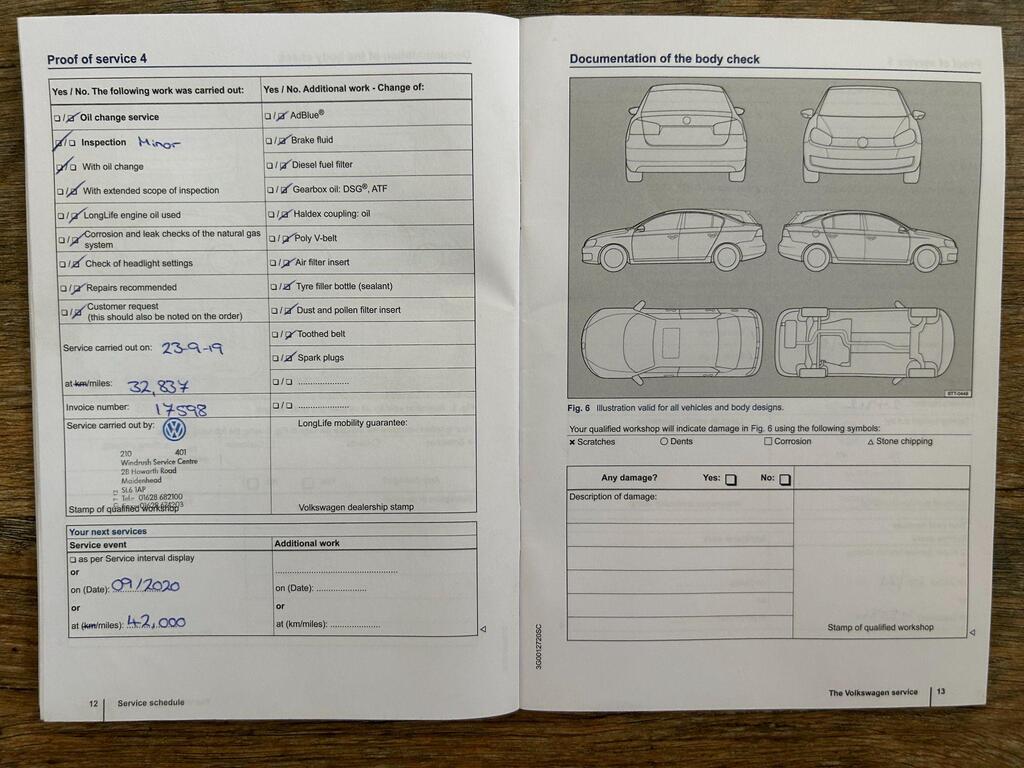 Proof of service 4
Yes / No. The following work was carried out:
☐/☑ Oil change service
☑/☐ Inspection Minor
☑/☐ With oil change
☐/☑ With extended scope of inspection
☐/☑ LongLife engine oil used
☐/☑ Corrosion and leak checks of the natural gas
system
☐/☑ Check of headlight settings
☐/☑ Repairs recommended
☐/☑ Customer request
(this should also be noted on the order)
Service carried out on: 23-9-19
at km/miles: 32,837
Invoice number: 17598
Service carried out by:
210 401
Windrush Service Centre
2B Howarth Road
Maidenhead
SL6 1AP
Tel:- 01628 682100
Stamp of qualified workshop
Yes / No. Additional work - Change of:
☐/☑ AdBlue®
☐/☑ Brake fluid
☐/☑ Diesel fuel filter
☐/☑ Gearbox oil: DSG®, ATF
☐/☑ Haldex coupling: oil
☐/☑ Poly V-belt
☐/☑ Air filter insert
☐/☑ Tyre filler bottle (sealant)
☐/☑ Dust and pollen filter insert
☐/☑ Toothed belt
☐/☑ Spark plugs
☐/☐ ......................
☐/☐ ......................
LongLife mobility guarantee:
Volkswagen dealership stamp
Your next services
Service event
☐ as per Service interval display
or
on (Date): 09/2020
or
at (km/miles): 42,000
Additional work
on (Date): ......................
or
at (km/miles): ......................
12 Service schedule
Documentation of the body check
BTT-0448
Fig. 6 Illustration valid for all vehicles and body designs.
Your qualified workshop will indicate damage in Fig. 6 using the following symbols:
× Scratches ○ Dents ☐ Corrosion △ Stone chipping
Any damage? Yes: ☐ No: ☐
Description of damage:
Stamp of qualified workshop
3G0012720SC
The Volkswagen service 13